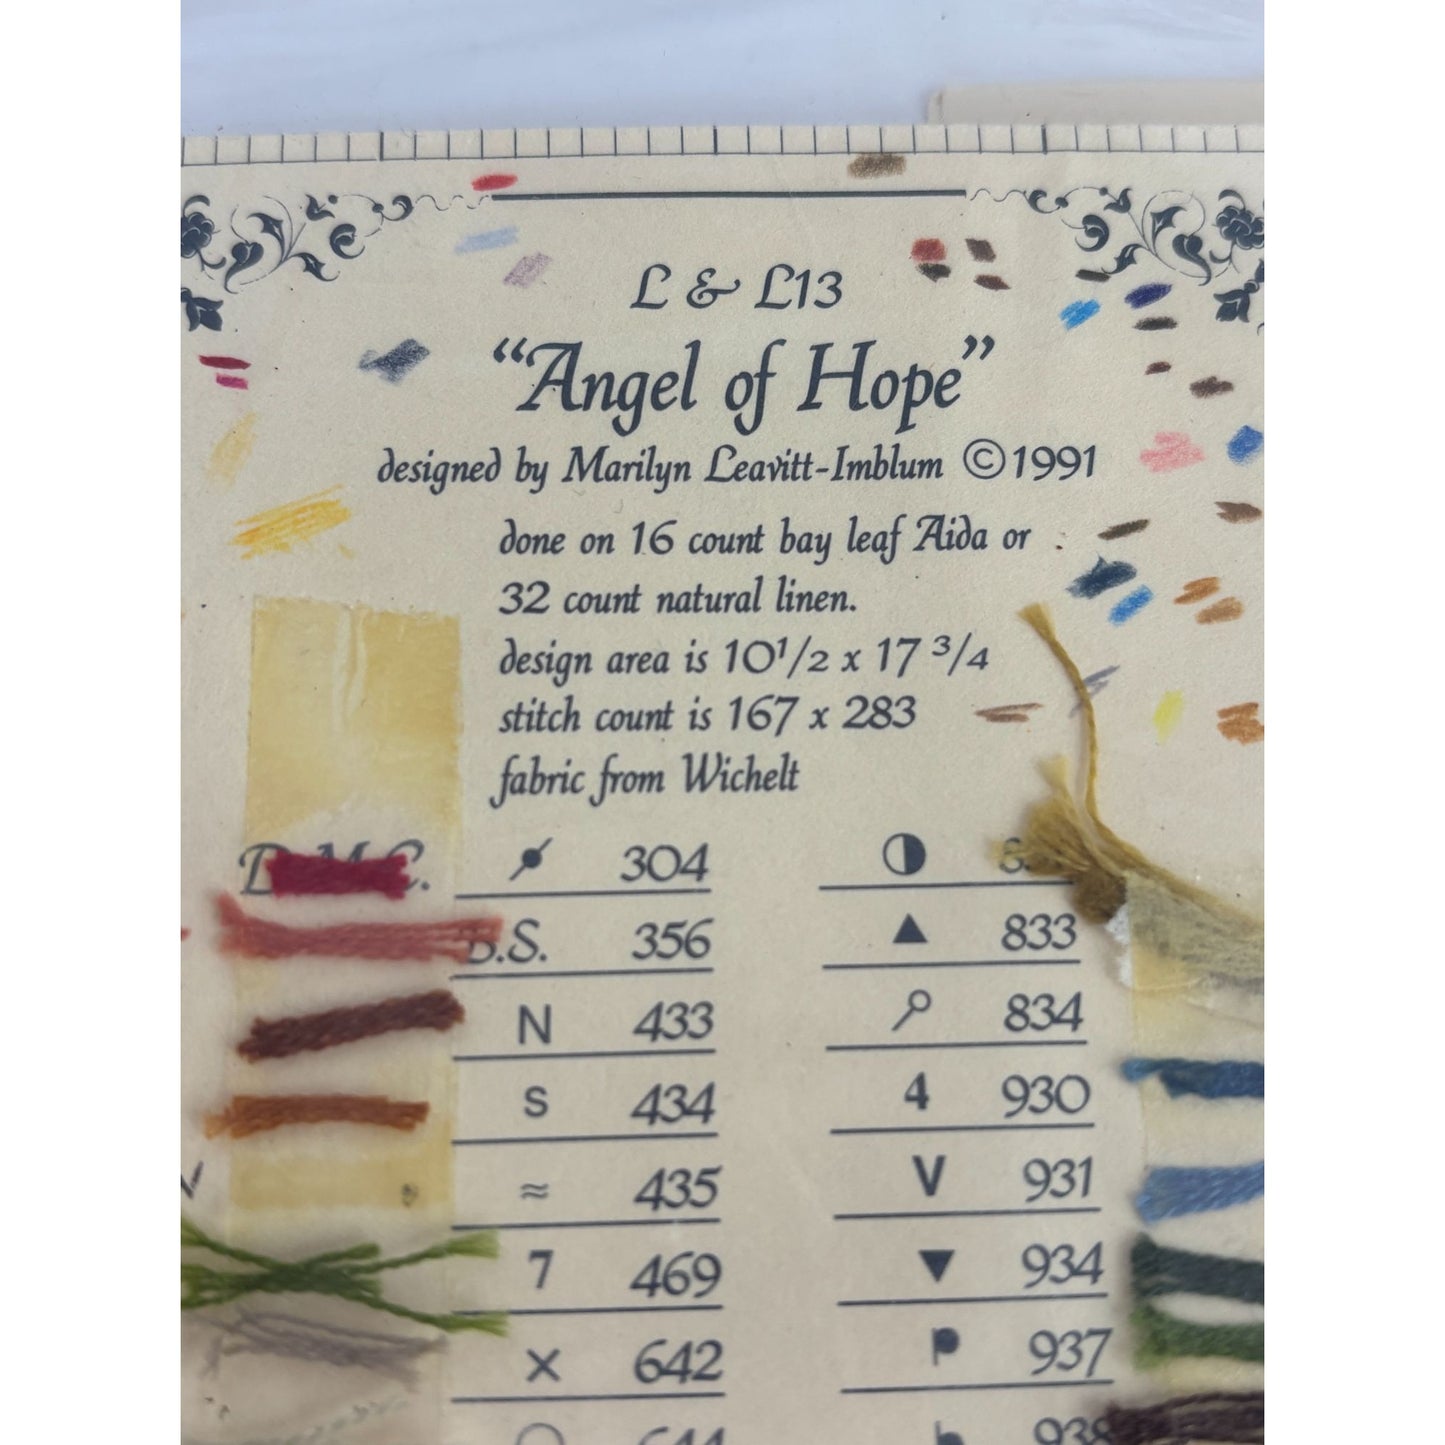 L & L13
“Angel of Hope”
designed by Marilyn Leavitt-Imblum ©1991
done on 16 count bay leaf Aida or
32 count natural linen.
design area is 10 1/2 x 17 3/4
stitch count is 167 x 283
fabric from Wichelt
D.M.C. 304
B.S. 356 ▲ 833
N 433 834
S 434 4 930
≈ 435 V 931
7 469 ▼ 934
X 642 937
644 938